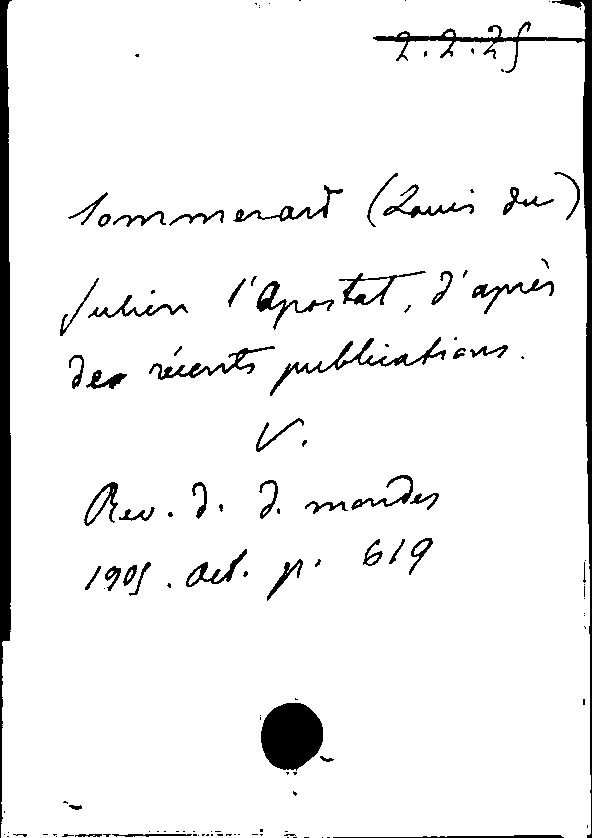 2.2.25
Sommerard (Louis du)
Julien l'Apostat, d'après
des récents publications.
V.
Rev. d. d. mondes
1905. Oct. p. 619